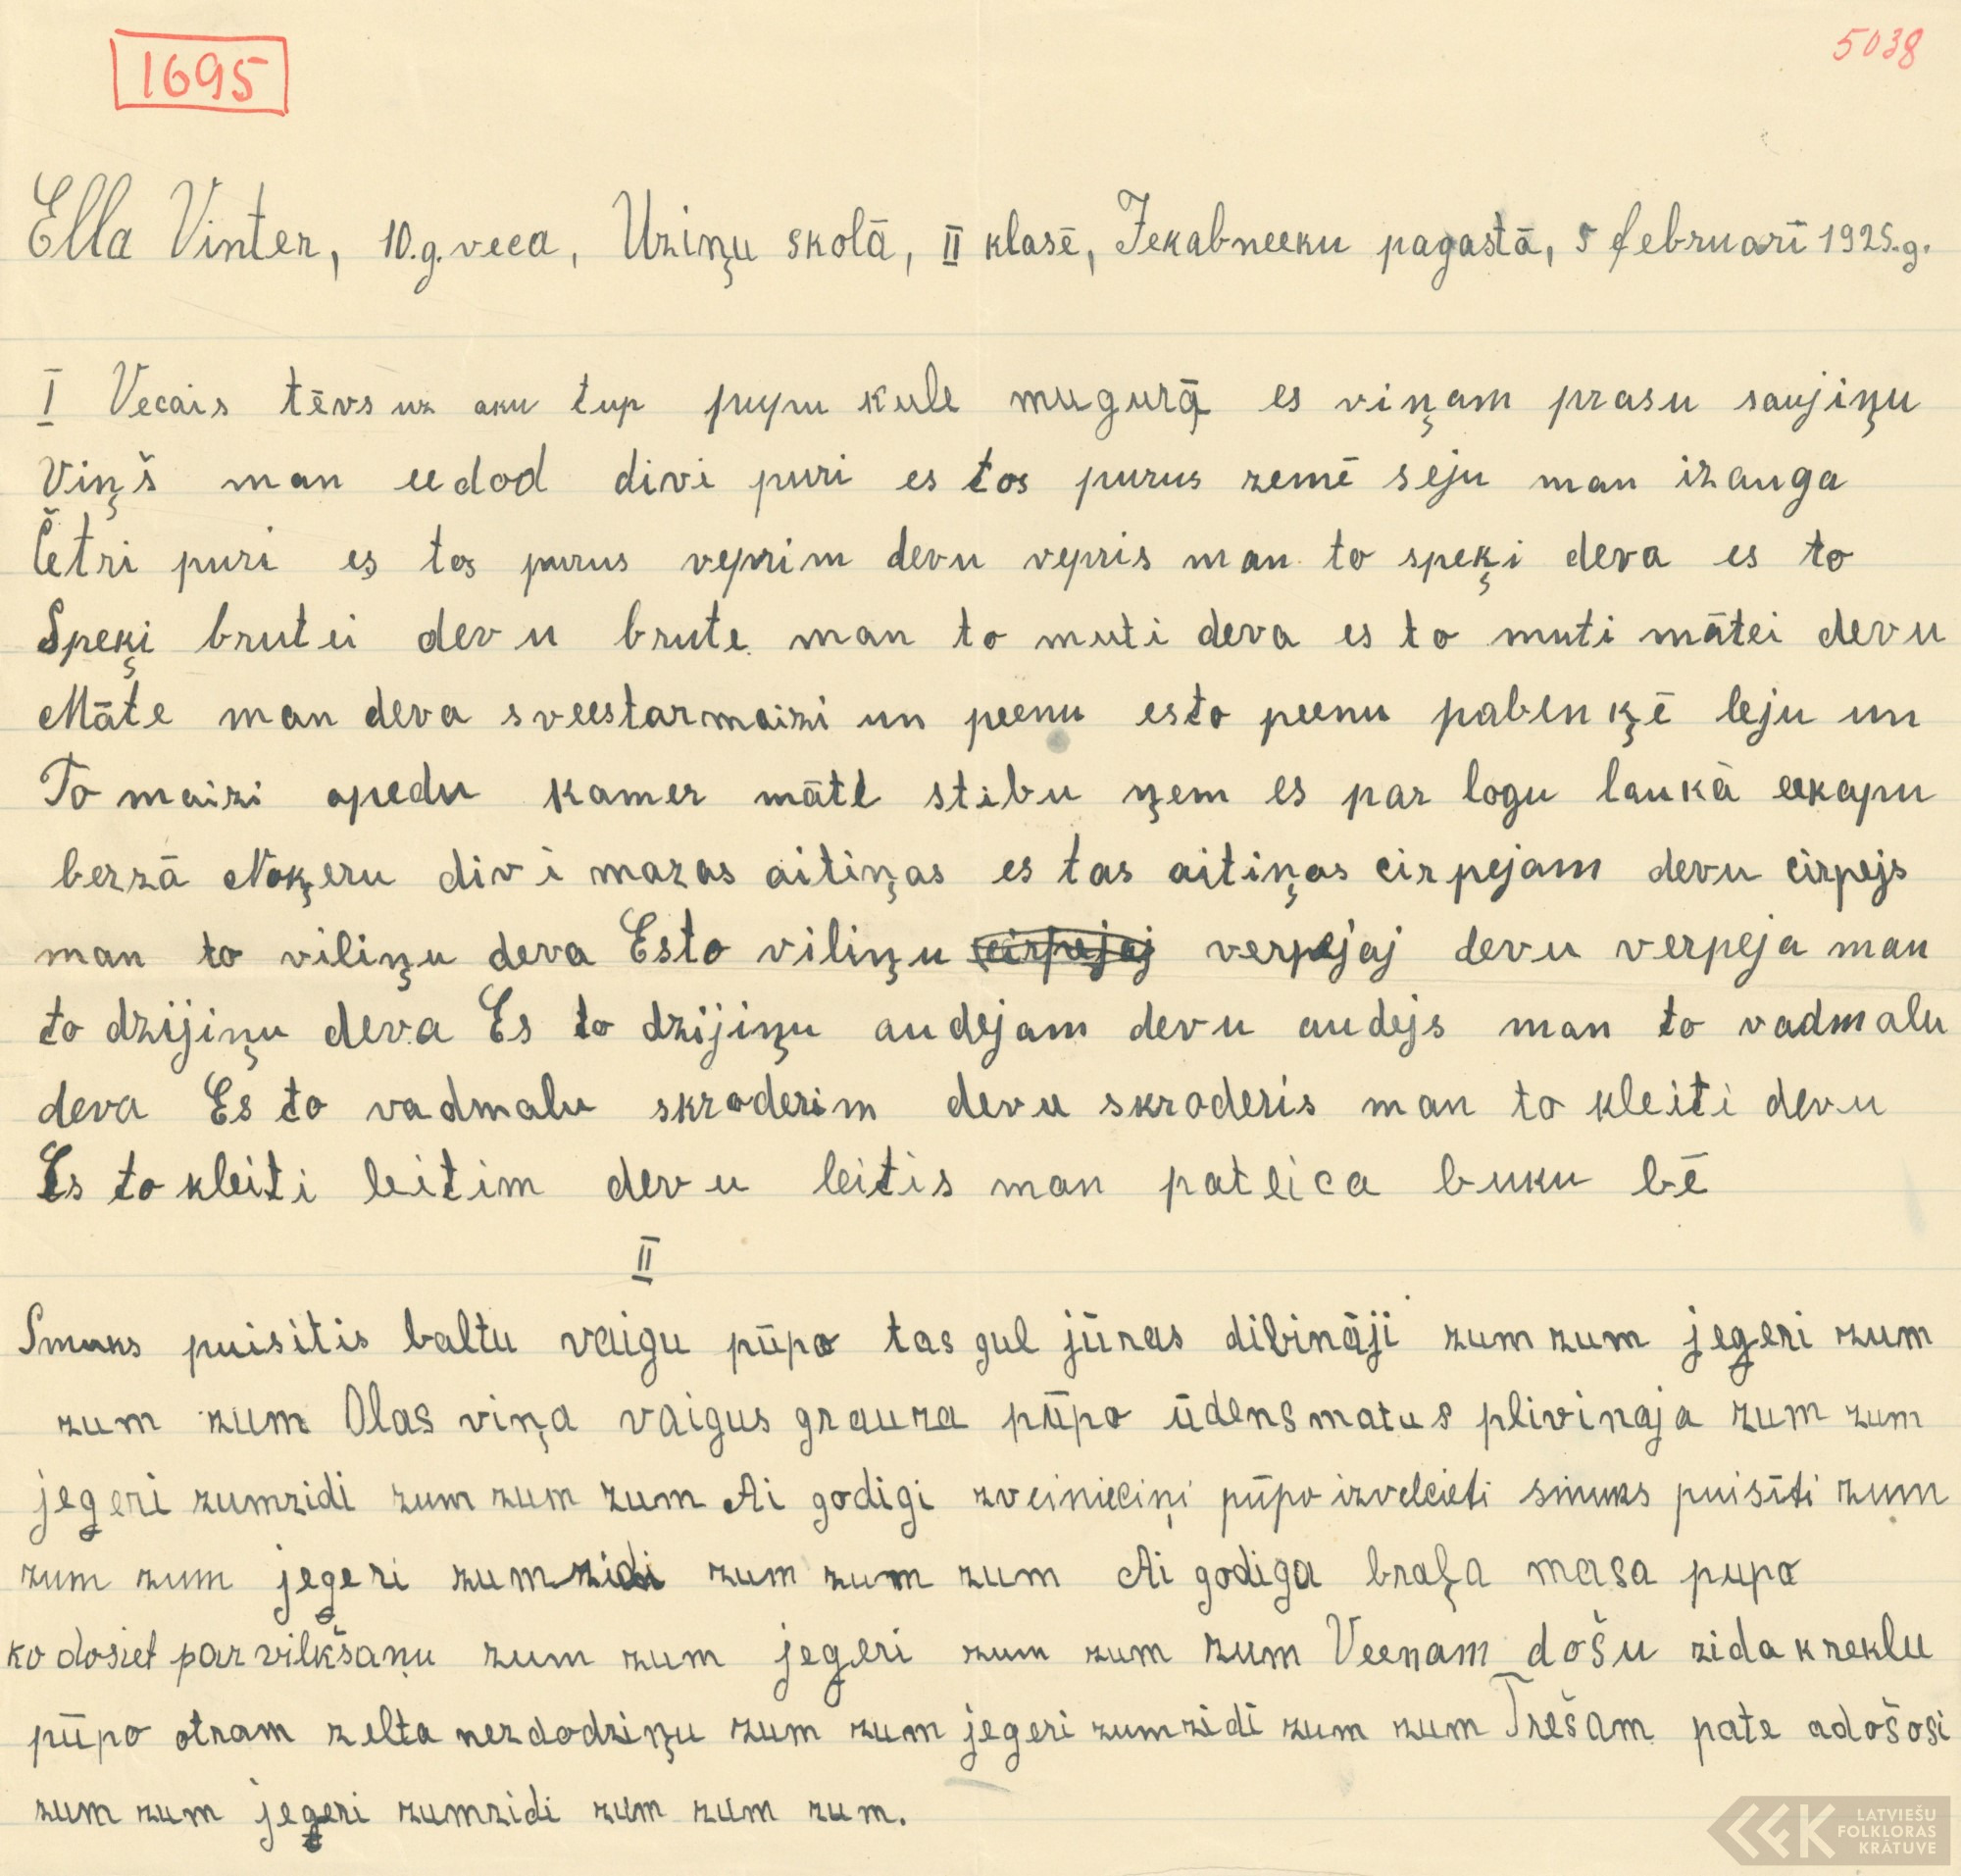 1695
5038
Ella Vinter, 10.g. veca, Uziņu skolā, II klasē, Jekabneeku pagastā, 5 februarī 1925.g.
I Vecais tēvs uz aku tup pupu kule mugurā es viņam prasu saujiņu
Viņš man eedod divi puri es tos purus zemē seju man izauga
Četri puri es tos purus veprim devu vepris man to speķi deva es to
Speķi brutei devu brute man to muti deva es to muti mātei devu
Māte man deva sveestarmaizi un peenu esto peenu pabenķē leju un
To maizi apedu kamer māte stibu ņem es par logu laukā eekapu
berzā Noķeru divi mazas aitiņas es tas aitiņas cirpejam devu cirpejs
man to viliņu deva Esto viliņu cirpejaj verpejaj devu verpeja man
to dzijiņu deva Es to dzijiņu audejam devu audejs man to vadmalu
deva Es to vadmalu skroderim devu skroderis man to kleiti devu
Es to kleiti leitim devu leitis man pateica buku bē
II
Smuks puisitis baltu vaigu pūpo tas gul jūras dibināji zum zum jegeri zum
zum zum Olas viņa vaigus grauza pūpo ūdens matus plivinaja zum zum
jegeri zumzidi zum zum zum Ai godigi zveinieciņi pūpo izvelcieti smuks puisīti zum
zum zum jegeri zumzidi zum zum zum Ai godiga braļa masa pupo
ko dosiet par vilkšaņu zum zum jegeri zum zum zum Veenam došu zida kreklu
pūpo otram zelta nezdodziņu zum zum jegeri zumzidi zum zum Trešam pate adošosi
zum zum jegeri zumzidi zum zum zum.
LATVIEŠU
FOLKLORAS
KRĀTUVE